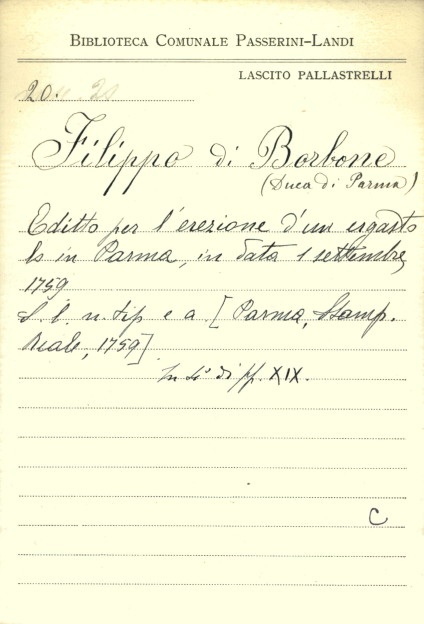 BIBLIOTECA COMUNALE PASSERINI-LANDI
LASCITO PALLASTRELLI
20
Filippo di Borbone
(Duca di Parma)
Editto per l'erezione d'un ergasto
lo in Parma, in data 1 settembre
1759
S. l. n. tip e a [Parma, Stamp.
Reale, 1759]
In 4° di pp. XIX.
C